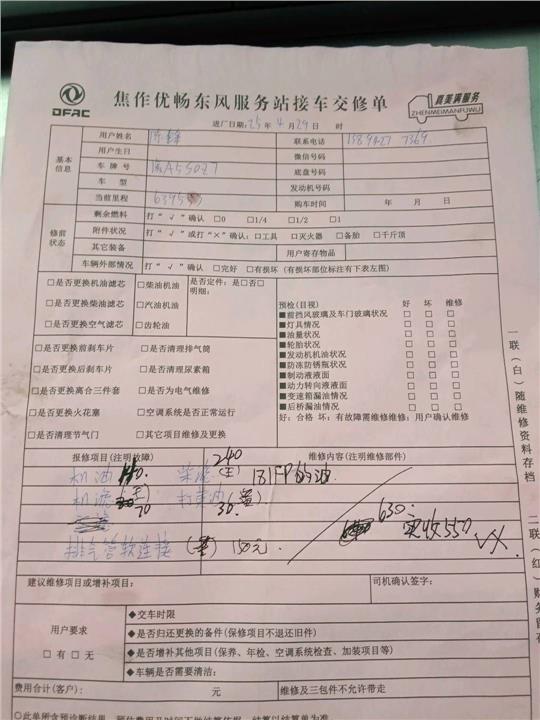 DFAC
焦作优畅东风服务站接车交修单
真美满服务
ZHENMEIMANFUWU
进厂日期:25 年 4 月 29 日 时
基本信息
用户姓名 联系电话
用户生日 微信号码
车牌号 A55027 底盘号码
车型 发动机号码
当前里程 购车时间 年 月 日
修前状态
剩余燃料 打“√”确认 □0 □1/4 □1/2 □1
附件状况 打“√”或打“×”确认:□工具 □灭火器 □备胎 □千斤顶
其它装备 用户寄存物品
车辆外部情况 打“√”确认 □完好 □有损坏 (有损坏部位标注有下表左图)
□是否更换机油滤芯 □柴油机油 是否定件:是□否□
明细:
□是否更换柴油滤芯 □汽油机油
□是否更换空气滤芯 □齿轮油
预检(目视) 好 坏 维修
■前挡风玻璃及车门玻璃状况 □ □ □
■灯具情况 □ □ □
■油量状况 □ □ □
■轮胎状况 □ □ □
■发动机机油状况 □ □ □
■防冻防锈瓶状况 □ □ □
■制动液液面 □ □ □
■动力转向液液面 □ □ □
■变速箱漏油情况 □ □ □
■后桥漏油情况 □ □ □
好:合格 坏:有故障需维修维修:用户确认维修
□是否更换前刹车片 □是否清理排气筒
□是否更换后刹车片 □是否清理尿素箱
□是否更换离合三件套 □是否为电气维修
□是否更换火花塞 □空调系统是否正常运行
□是否清理节气门 □其它项目维修及更换
报修项目(注明故障) 维修内容(注明维修部件)
机油 柴滤 240
机滤 70 打黄油 30.
排气管软连接 150元.
630.
实收550 VX.
建议维修项目或增补项目: 司机确认签字:
用户要求
□有 □无
◆交车时限
◆是否归还更换的备件(保修项目不退还旧件)
◆是否增补其他项目(保养、年检、空调系统检查、加装项目等)
◆车辆是否需要清洁:
费用合计(客户): 元 维修及三包件不允许带走
一联(白)随维修资料存档
二联(红)